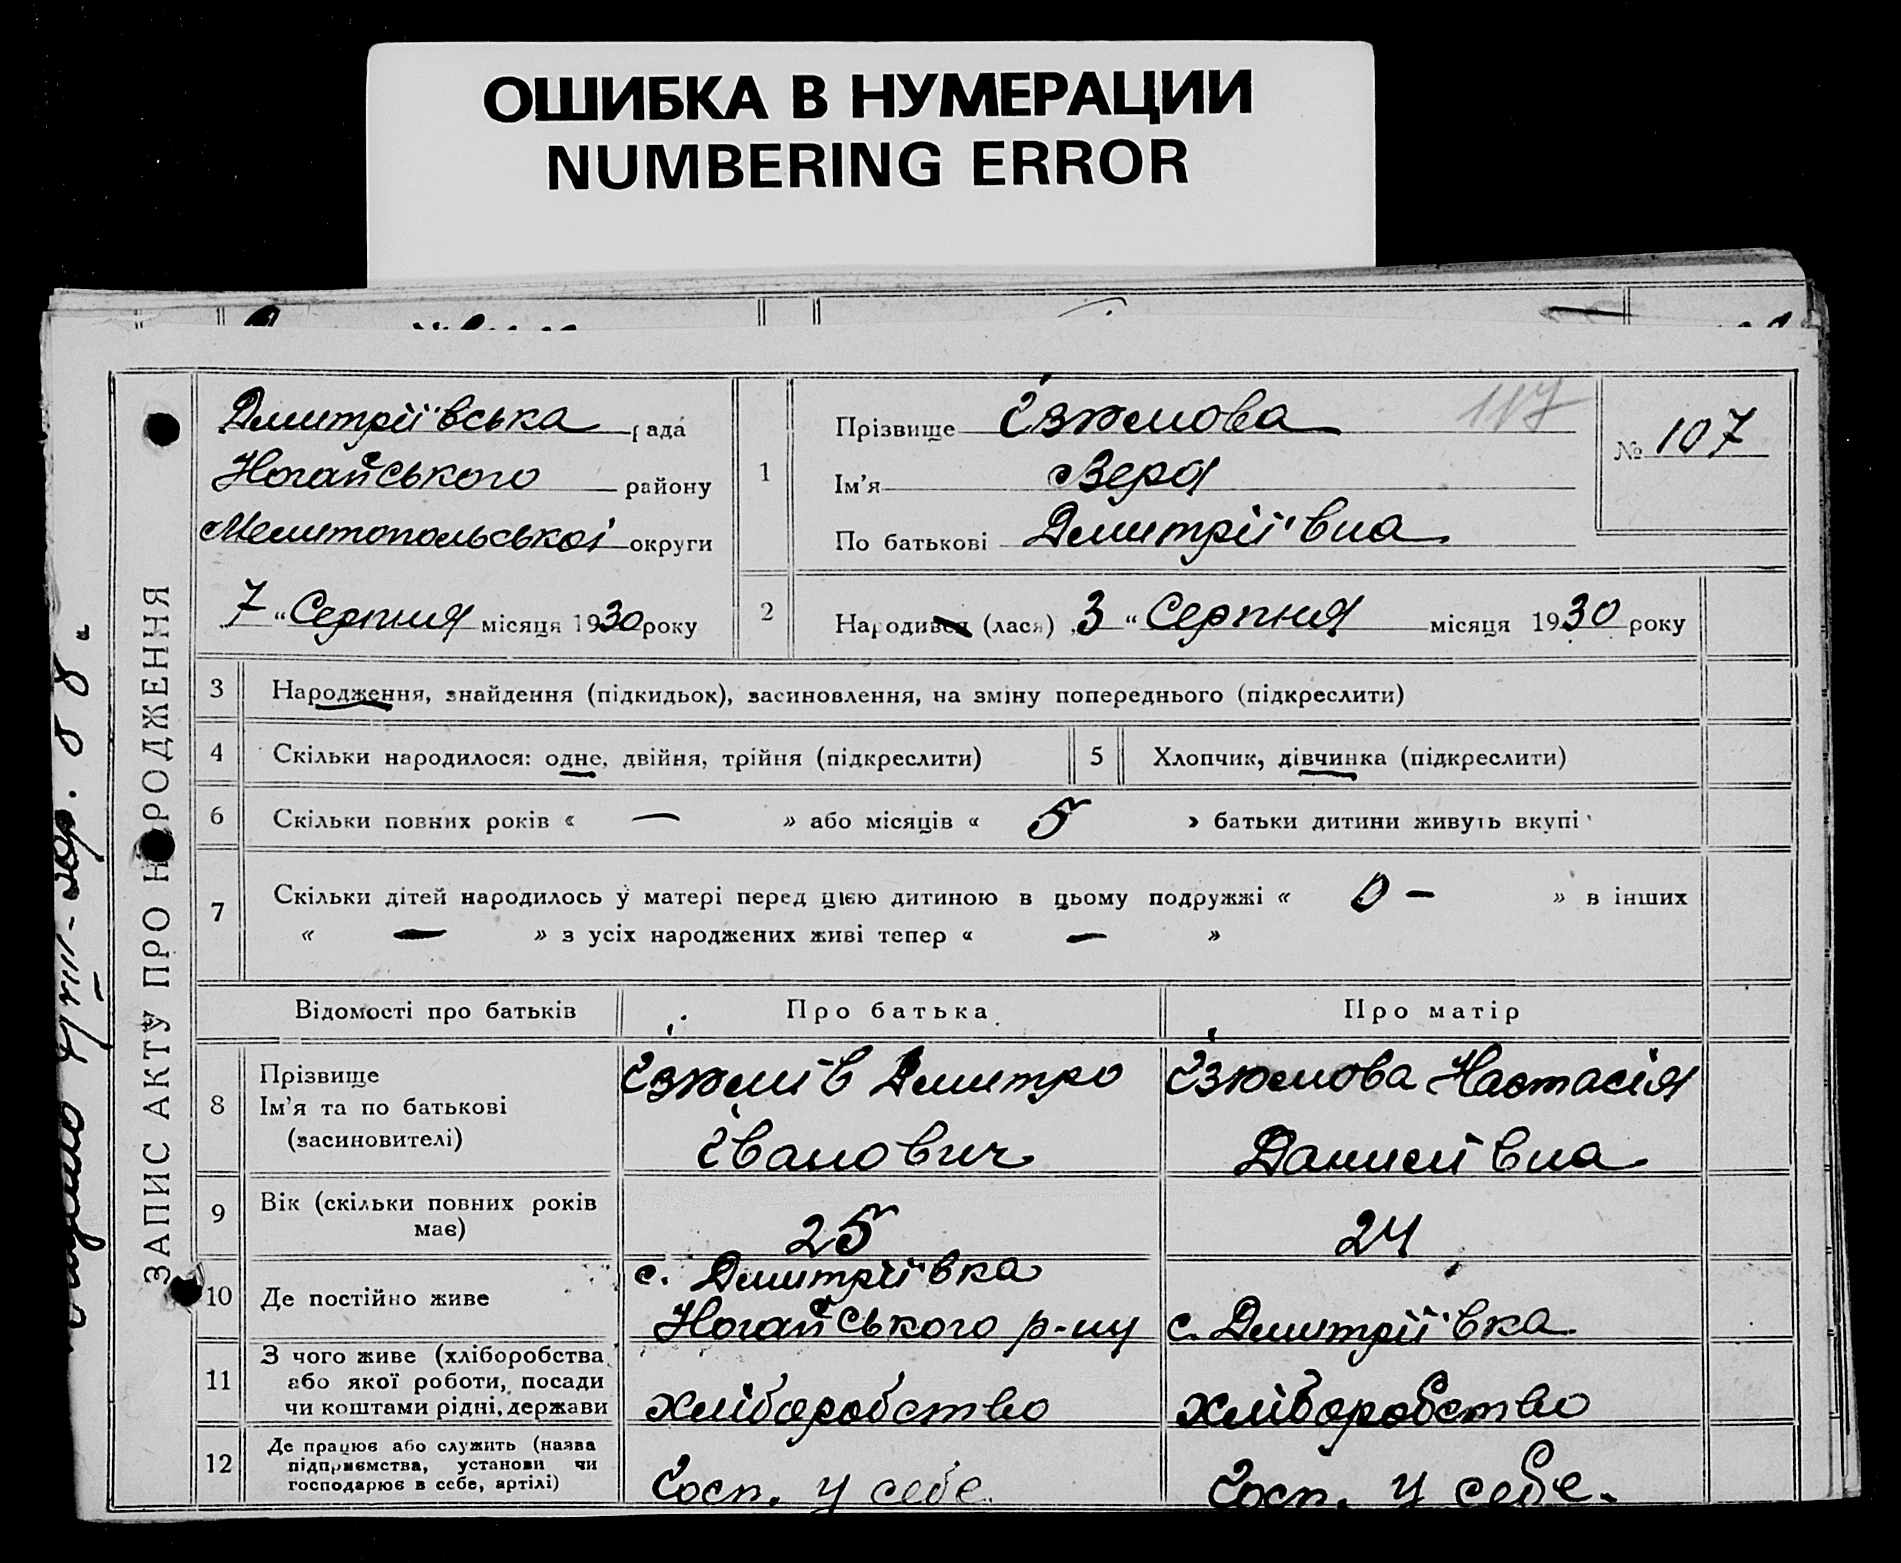 ОШИБКА В НУМЕРАЦИИ
NUMBERING ERROR
ЗАПИС АКТУ ПРО НАРОДЖЕННЯ
Дмитріївська рада
Ногайського району
Мелитопольської округи
7 "Серпня місяця 1930 року
1
Прізвище Ізюмова
117
Ім'я Вера
По батькові Дмитріївна
№ 107
2
Народився (лася) „3 " Серпня місяця 1930 року
3 Народження, знайдення (підкидьок), засиновлення, на зміну попереднього (підкреслити)
4 Скільки народилося: одне, двійня, трійня (підкреслити)
5 Хлопчик, дівчинка (підкреслити)
6 Скільки повних років « — » або місяців « 5 » батьки дитини живуть вкупі
7 Скільки дітей народилось у матері перед цією дитиною в цьому подружжі « 0 – » в інших
« — » з усіх народжених живі тепер « — »
Відомості про батьків
Про батька
Про матір
8 Прізвище
Ім'я та по батькові
(засиновителі)
Ізюмів Дмитро
Іванович
Ізюмова Настасія
Данилівна
9 Вік (скільки повних років
має)
25
24
10 Де постійно живе
с. Дмитріївка
Ногайського р-ну
с. Дмитріївка
11 З чого живе (хліборобства
або якої роботи, посади
чи коштами рідні, держави
хліборобство
хліборобство
12 Де працює або служить (назва
підприємства, установи чи
господарює в себе, артілі)
Госп. у себе.
Госп. у себе.